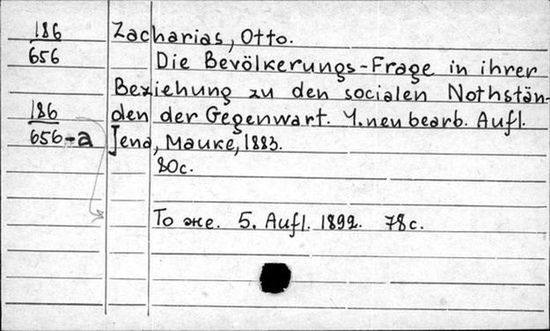 186 Zacharias, Otto.
656 Die Bevölkerungs-Frage in ihrer
Beziehung zu den socialen Nothstän-
186 den der Gegenwart. 4. neu bearb. Aufl.
656-a Jena, Mauke, 1883.
80c.
То же. 5. Aufl. 1892. 78c.